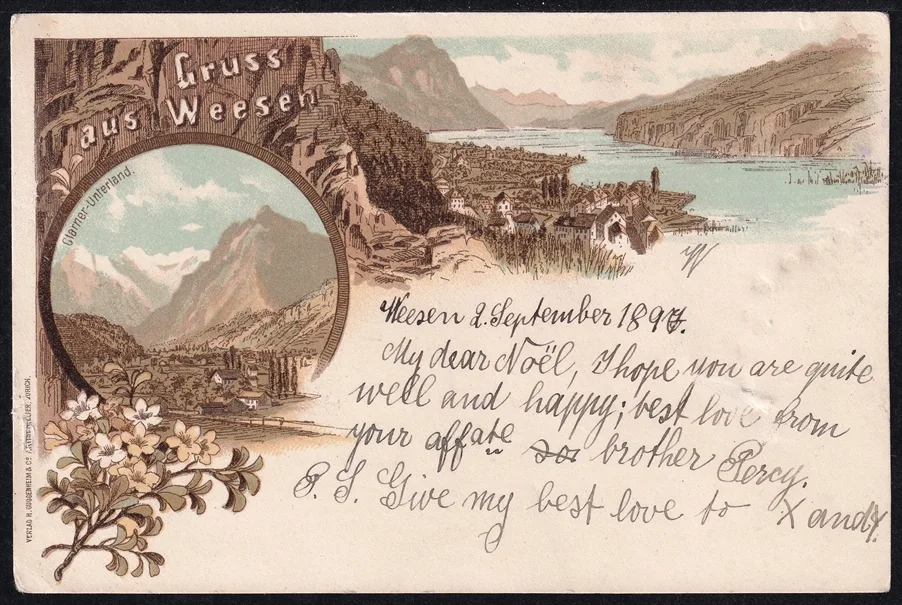 Gruss
aus Weesen
Glarner-Unterland.
W
Weesen 2. September 1897.
My dear Noël, I hope you are quite
well and happy; best love from
your affate brother Percy.
P. S. Give my best love to X and Y.
VERLAG H. GUGGENHEIM & Co. ZÜRICH.